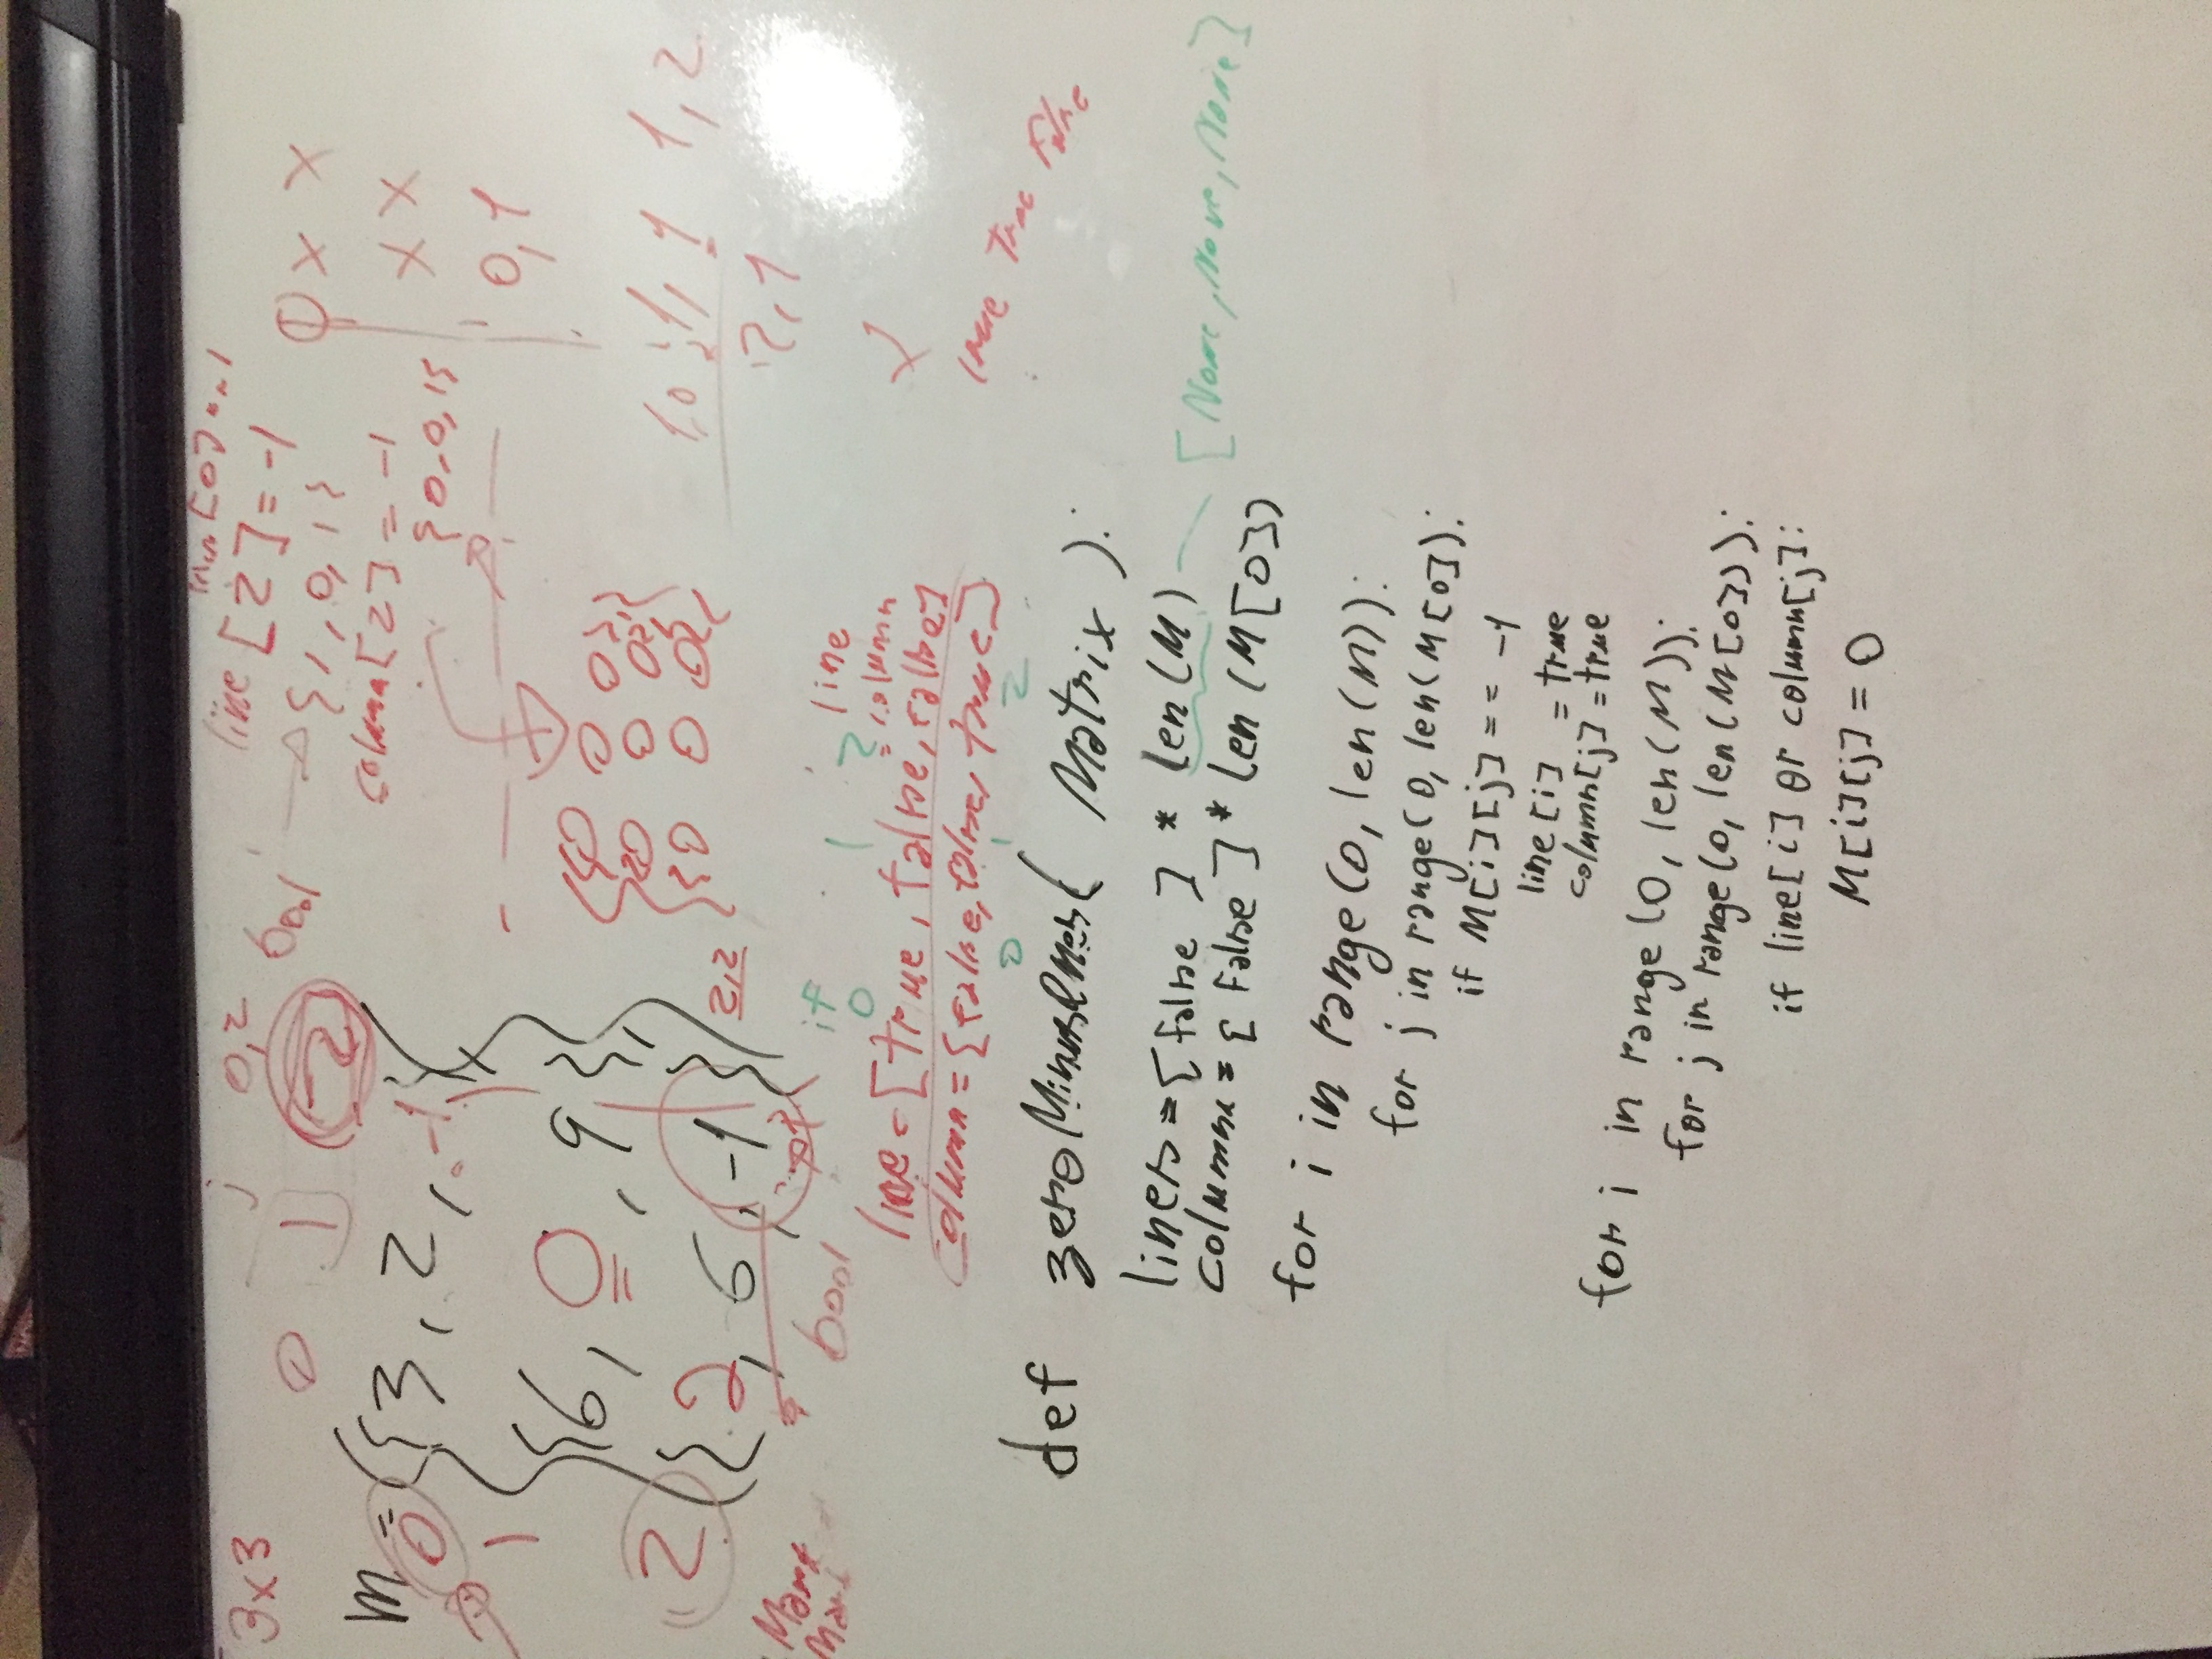 3x3
j
0,2
line [2] = -1
0 1 2
bool
{1, 0, 1}
column[2] = -1
{0, 0, 1}
x x
x x
0,1
m = {{3, 2, -1}
0
1
{6, 0, 9},
2
{2, 6, -1}}
2,2
0 0
0 0
0 0
1, 1 1,2
2,1
Mark
bool
if
0 1 2
line
column
line = [true, false, false]
column = {false, false, true}
0 1 2
true true false
def zeroMinusOnes( Matrix ):
lines = [false ] * len(M)
[None, None, None]
columns = [ False ] * len (M[0])
for i in range(0, len(M)):
for j in range(0, len(M[0]):
if M[i][j] == -1
line[i] = true
column[j] = true
for i in range (0, len(M)):
for j in range(0, len(M[0])):
if line[i] or column[j]:
M[i][j] = 0